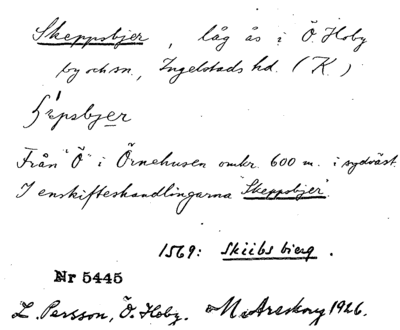 Skeppsbjer, låg ås i Ö. Hoby
by och sn., Ingelstads hd. (K.)
Från "Ö" i Örnehusen omkr. 600 m. i sydväst.
I enskifteshandlingarna "Skeppsbjer".
1569: Skiibs bierg.
Nr 5445
L. Persson, Ö. Hoby. M. Areskog 1926.